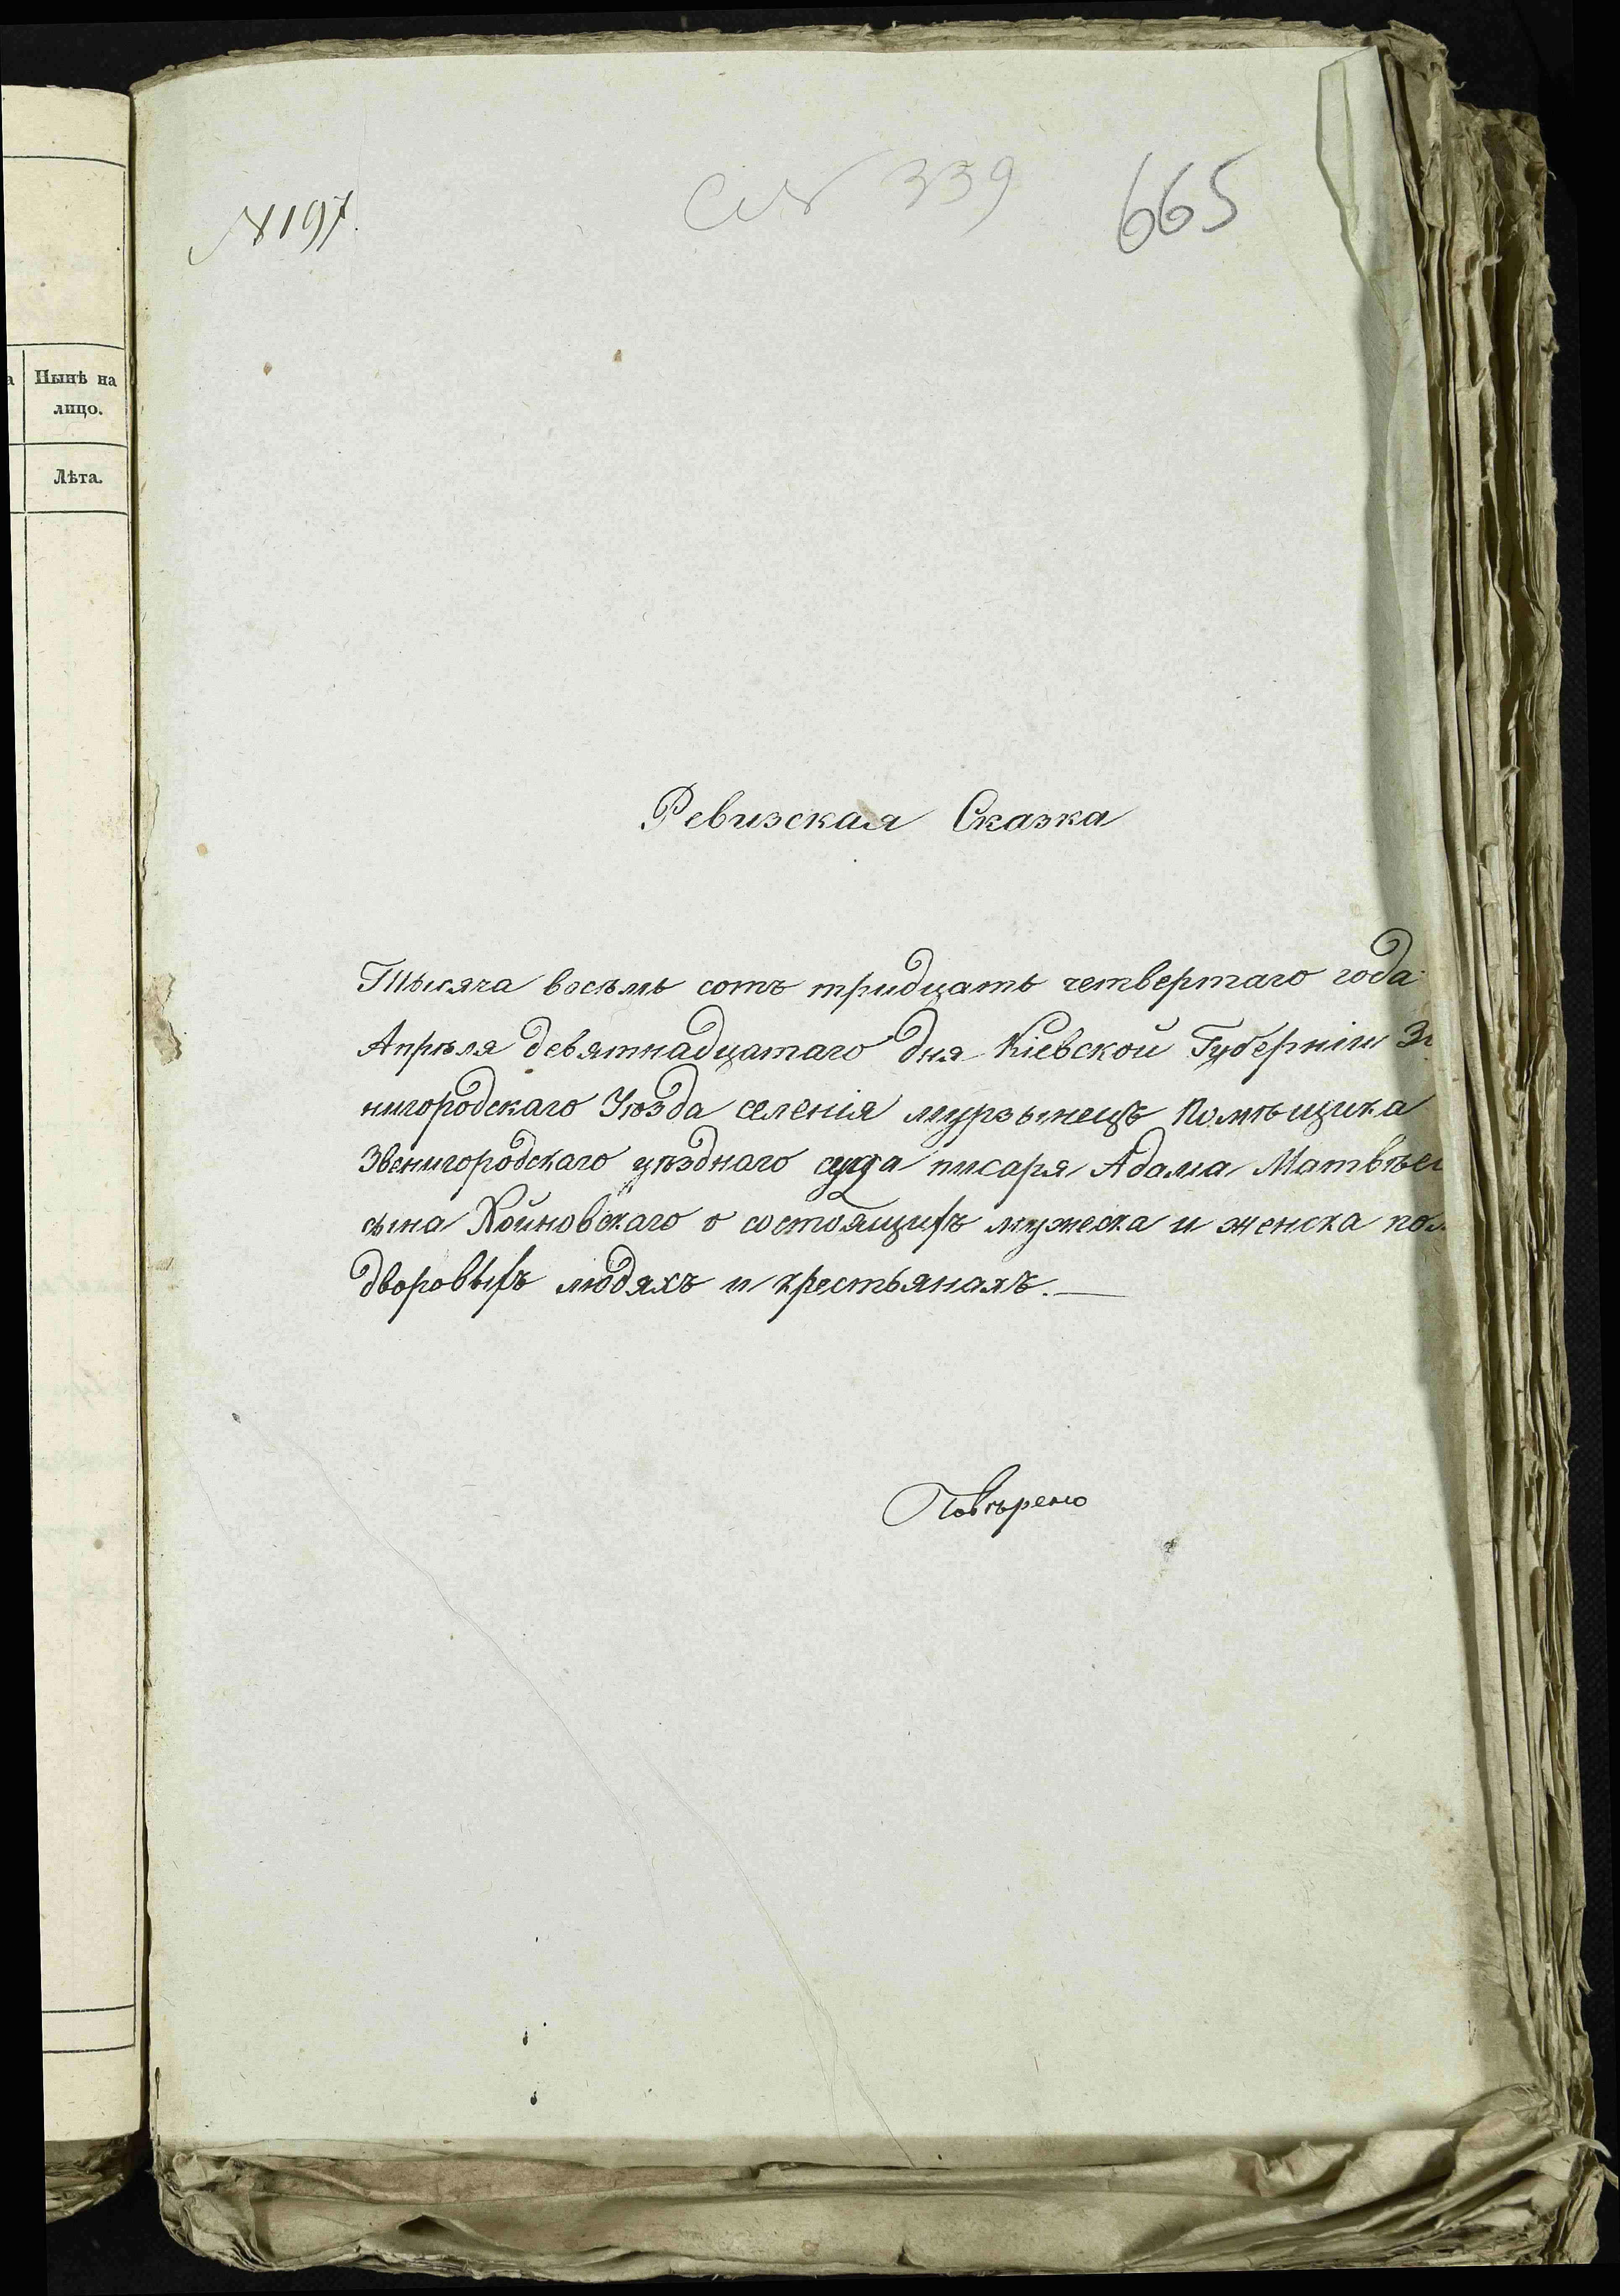 Нынѣ на
лицо.
Лѣта.
№ 197.
№ 339
665
Ревизская Сказка
Тысяча восемь сотъ тридцать четвертаго года
Апрѣля девятнадцатаго дня Кіевской Губерніи Зв
нигородскаго Уѣзда селенія мурзынецъ помѣщика
Звенигородскаго уѣзднаго суда писаря Адама Матвѣе
сына Хойновскаго о состоящихъ мужеска и женска пол
дворовыхъ людяхъ и крестьянахъ.—
Повѣрено